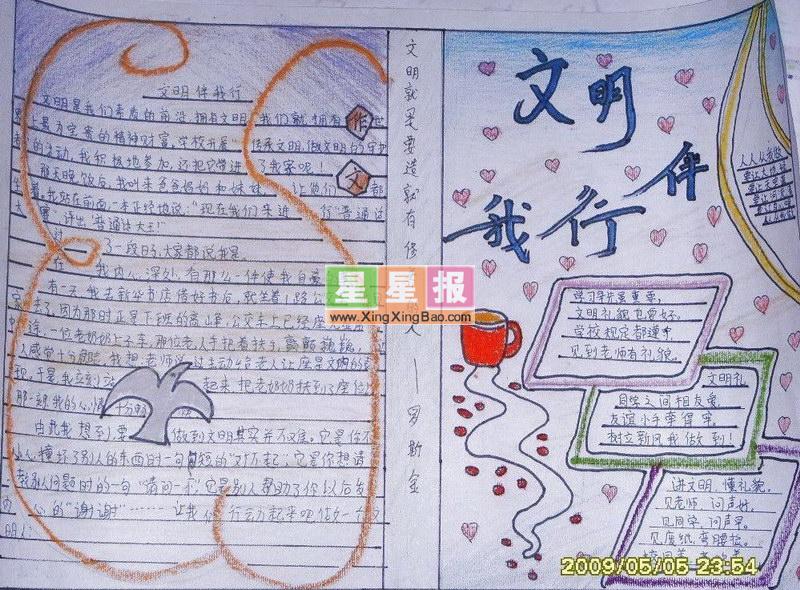 文明伴我行
作文
文明是我们素质的前沿,拥有文明,我们就拥有
上最为宝贵的精神财富。学校开展"传承文明,做文明的守护
的活动。我积极地参加,还把它带进了我家呢!
那天晚饭后,我叫来爸爸妈妈和妹妹,让他们
着,我站在前面一本正经地说:"现在我们来进行"普通话
大赛,评出"普通话大王!"
了一段时,大家都说我是
我内心深处,有那么一件使我自豪
有一天,我去新华书店借好书后,就坐着1路公
来了,因为那时正是下班的高峰,公交车上已经座无虚席
途,一位老奶奶上了车,那位老人手把着扶手,
人感觉十分危险,我想:老师说过主动给老人让座是文明的
现,于是,我立刻
起来,把老奶奶扶到了座位
那一刻,我的心情十分
由此我想到:要做到文明其实并不难。它是你不
小心撞坏了别人的东西时一句"对不起",它是你想请
教别人问题时的一句"请问一下",它是别人帮助了你以后发
内心的"谢谢"……让我们行动起来吧,做一个文
明人!
文明就是要造就有修
人
—罗斯金
文明
伴
我行
学习守纪最重要,
文明礼貌也要好。
学校规定都遵守,
见到老师有礼貌。
文明礼
同学之间相友爱,
友谊小手牵得牢。
树立新风我做到!
讲文明,懂礼貌。
见老师,问声好。
见同学,问声早。
见废纸,弯腰捡。
星星报
www.XingXingBao.com
2009/05/05 23:54